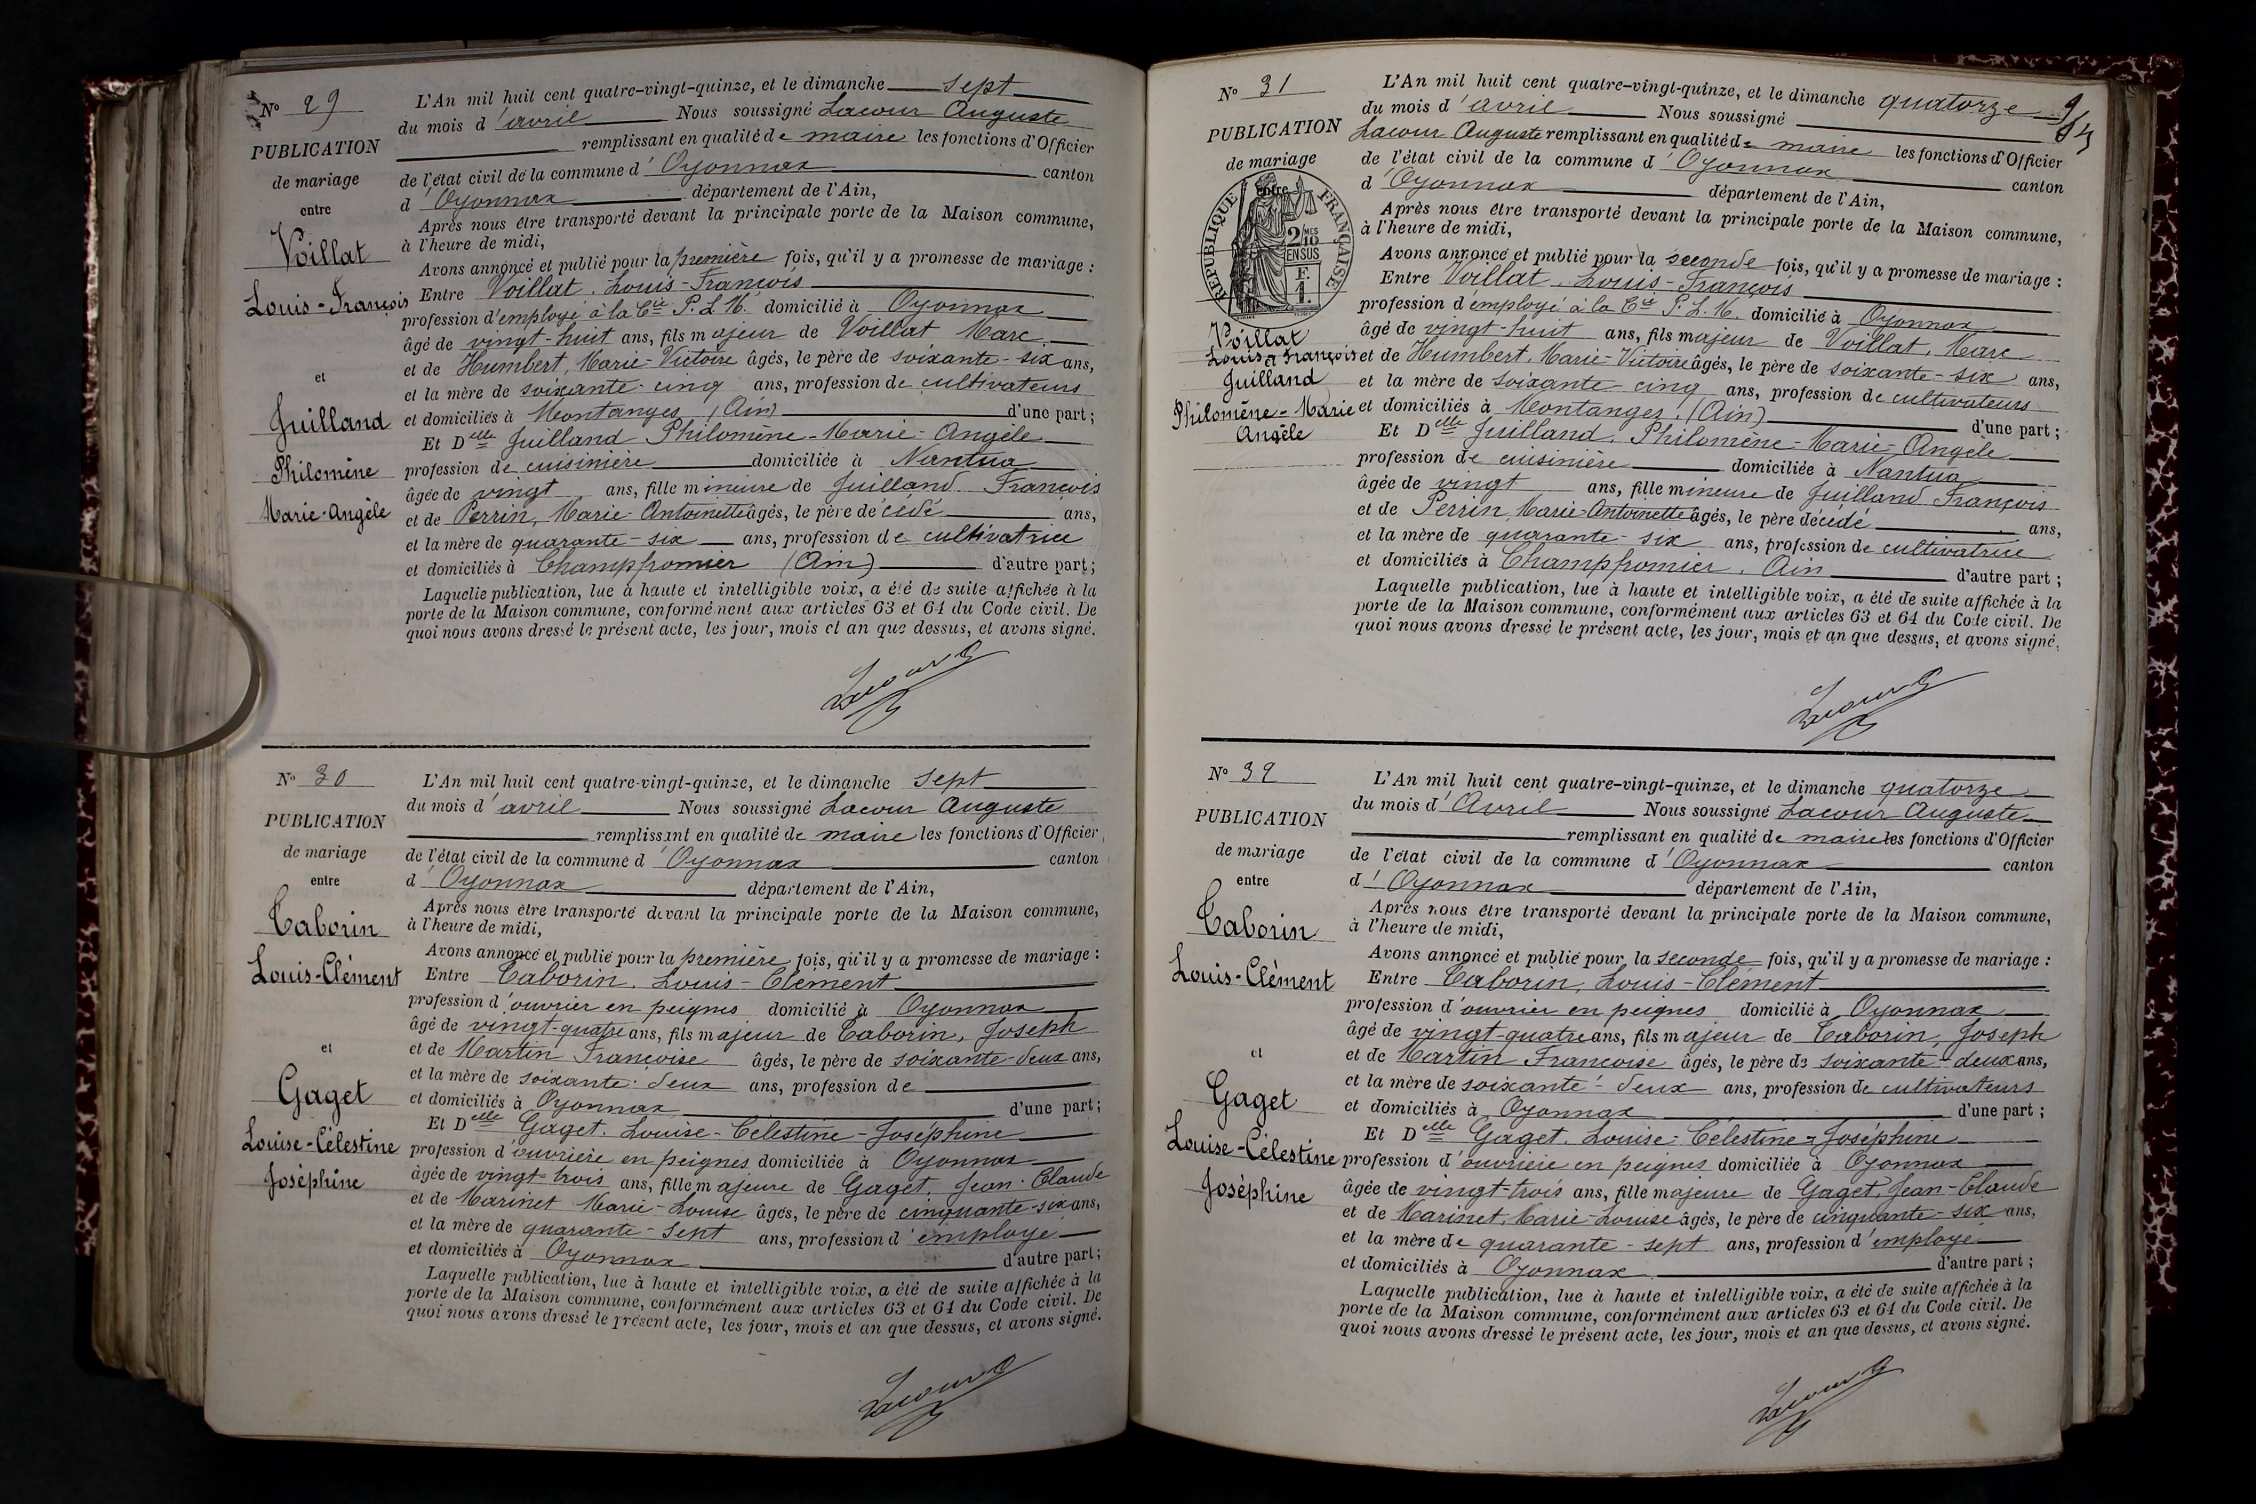 N° 29
PUBLICATION
de mariage
entre
Voillat
Louis-François
et
Juilland
Philomène
Marie-Angèle
L'An mil huit cent quatre-vingt-quinze, et le dimanche sept
du mois d'avril Nous soussigné Lacour Auguste
remplissant en qualité de maire les fonctions d'Officier
de l'état civil de la commune d'Oyonnax canton
d'Oyonnax département de l'Ain,
Après nous être transporté devant la principale porte de la Maison commune,
à l'heure de midi,
Avons annoncé et publié pour la première fois, qu'il y a promesse de mariage :
Entre Voillat, Louis-François
profession d'employé à la Cie P. L. M. domicilié à Oyonnax
âgé de vingt-huit ans, fils majeur de Voillat Marc
et de Humbert, Marie-Victoire âgés, le père de soixante-six ans,
et la mère de soixante-cinq ans, profession de cultivateurs
et domiciliés à Montanges (Ain) d'une part ;
Et Delle Juilland Philomène-Marie-Angèle
profession de cuisinière domiciliée à Nantua
âgée de vingt ans, fille mineure de Juilland François
et de Perrin, Marie-Antoinette âgés, le père décédé ans,
et la mère de quarante-six ans, profession de cultivatrice
et domiciliés à Champfromier (Ain) d'autre part ;
Laquelle publication, lue à haute et intelligible voix, a été de suite affichée à la
porte de la Maison commune, conformément aux articles 63 et 64 du Code civil. De
quoi nous avons dressé le présent acte, les jour, mois et an que dessus, et avons signé.
Lacour A
N° 30
PUBLICATION
de mariage
entre
Taborin
Louis-Clément
et
Gaget
Louise-Célestine
Joséphine
L'An mil huit cent quatre-vingt-quinze, et le dimanche sept
du mois d'avril Nous soussigné Lacour Auguste
remplissant en qualité de maire les fonctions d'Officier
de l'état civil de la commune d'Oyonnax canton
d'Oyonnax département de l'Ain,
Après nous être transporté devant la principale porte de la Maison commune,
à l'heure de midi,
Avons annoncé et publié pour la première fois, qu'il y a promesse de mariage :
Entre Taborin, Louis-Clément
profession d'ouvrier en peignes domicilié à Oyonnax
âgé de vingt-quatre ans, fils majeur de Taborin, Joseph
et de Martin Françoise âgés, le père de soixante-deux ans,
et la mère de soixante-deux ans, profession de
et domiciliés à Oyonnax d'une part ;
Et Delle Gaget, Louise-Célestine-Joséphine
profession d'ouvrière en peignes domiciliée à Oyonnax
âgée de vingt-trois ans, fille majeure de Gaget, Jean-Claude
et de Marinet Marie-Louise âgés, le père de cinquante-six ans,
et la mère de quarante-sept ans, profession d'employé
et domiciliés à Oyonnax d'autre part ;
Laquelle publication, lue à haute et intelligible voix, a été de suite affichée à la
porte de la Maison commune, conformément aux articles 63 et 64 du Code civil. De
quoi nous avons dressé le présent acte, les jour, mois et an que dessus, et avons signé.
Lacour A
N° 31
PUBLICATION
de mariage
entre
RÉPUBLIQUE FRANÇAISE
2 MES
10
EN SUS
F.
1.
Voillat
Louis-François
et
Juilland
Philomène-Marie
Angèle
L'An mil huit cent quatre-vingt-quinze, et le dimanche quatorze
du mois d'avril Nous soussigné
Lacour Auguste remplissant en qualité de maire les fonctions d'Officier
de l'état civil de la commune d'Oyonnax canton
d'Oyonnax département de l'Ain,
Après nous être transporté devant la principale porte de la Maison commune,
à l'heure de midi,
Avons annoncé et publié pour la seconde fois, qu'il y a promesse de mariage :
Entre Voillat, Louis-François
profession d'employé à la Cie P. L. M. domicilié à Oyonnax
âgé de vingt-huit ans, fils majeur de Voillat, Marc
et de Humbert, Marie-Victoire âgés, le père de soixante-six ans,
et la mère de soixante-cinq ans, profession de cultivateurs
et domiciliés à Montanges, (Ain) d'une part ;
Et Delle Juilland, Philomène-Marie-Angèle
profession de cuisinière domiciliée à Nantua
âgée de vingt ans, fille mineure de Juilland François
et de Perrin, Marie-Antoinette âgés, le père décédé ans,
et la mère de quarante-six ans, profession de cultivatrice
et domiciliés à Champfromier, Ain d'autre part ;
Laquelle publication, lue à haute et intelligible voix, a été de suite affichée à la
porte de la Maison commune, conformément aux articles 63 et 64 du Code civil. De
quoi nous avons dressé le présent acte, les jour, mois et an que dessus, et avons signé.
Lacour A
N° 32
PUBLICATION
de mariage
entre
Taborin
Louis-Clément
et
Gaget
Louise-Célestine
Joséphine
L'An mil huit cent quatre-vingt-quinze, et le dimanche quatorze
du mois d'Avril Nous soussigné Lacour Auguste
remplissant en qualité de maire les fonctions d'Officier
de l'état civil de la commune d'Oyonnax canton
d'Oyonnax département de l'Ain,
Après nous être transporté devant la principale porte de la Maison commune,
à l'heure de midi,
Avons annoncé et publié pour la seconde fois, qu'il y a promesse de mariage :
Entre Taborin, Louis-Clément
profession d'ouvrier en peignes domicilié à Oyonnax
âgé de vingt-quatre ans, fils majeur de Taborin, Joseph
et de Martin Françoise âgés, le père de soixante-deux ans,
et la mère de soixante-deux ans, profession de cultivateurs
et domiciliés à Oyonnax d'une part ;
Et Delle Gaget, Louise-Célestine-Joséphine
profession d'ouvrière en peignes domiciliée à Oyonnax
âgée de vingt-trois ans, fille majeure de Gaget, Jean-Claude
et de Marinet, Marie-Louise âgés, le père de cinquante-six ans,
et la mère de quarante-sept ans, profession d'employé
et domiciliés à Oyonnax d'autre part ;
Laquelle publication, lue à haute et intelligible voix, a été de suite affichée à la
porte de la Maison commune, conformément aux articles 63 et 64 du Code civil. De
quoi nous avons dressé le présent acte, les jour, mois et an que dessus, et avons signé.
Lacour A